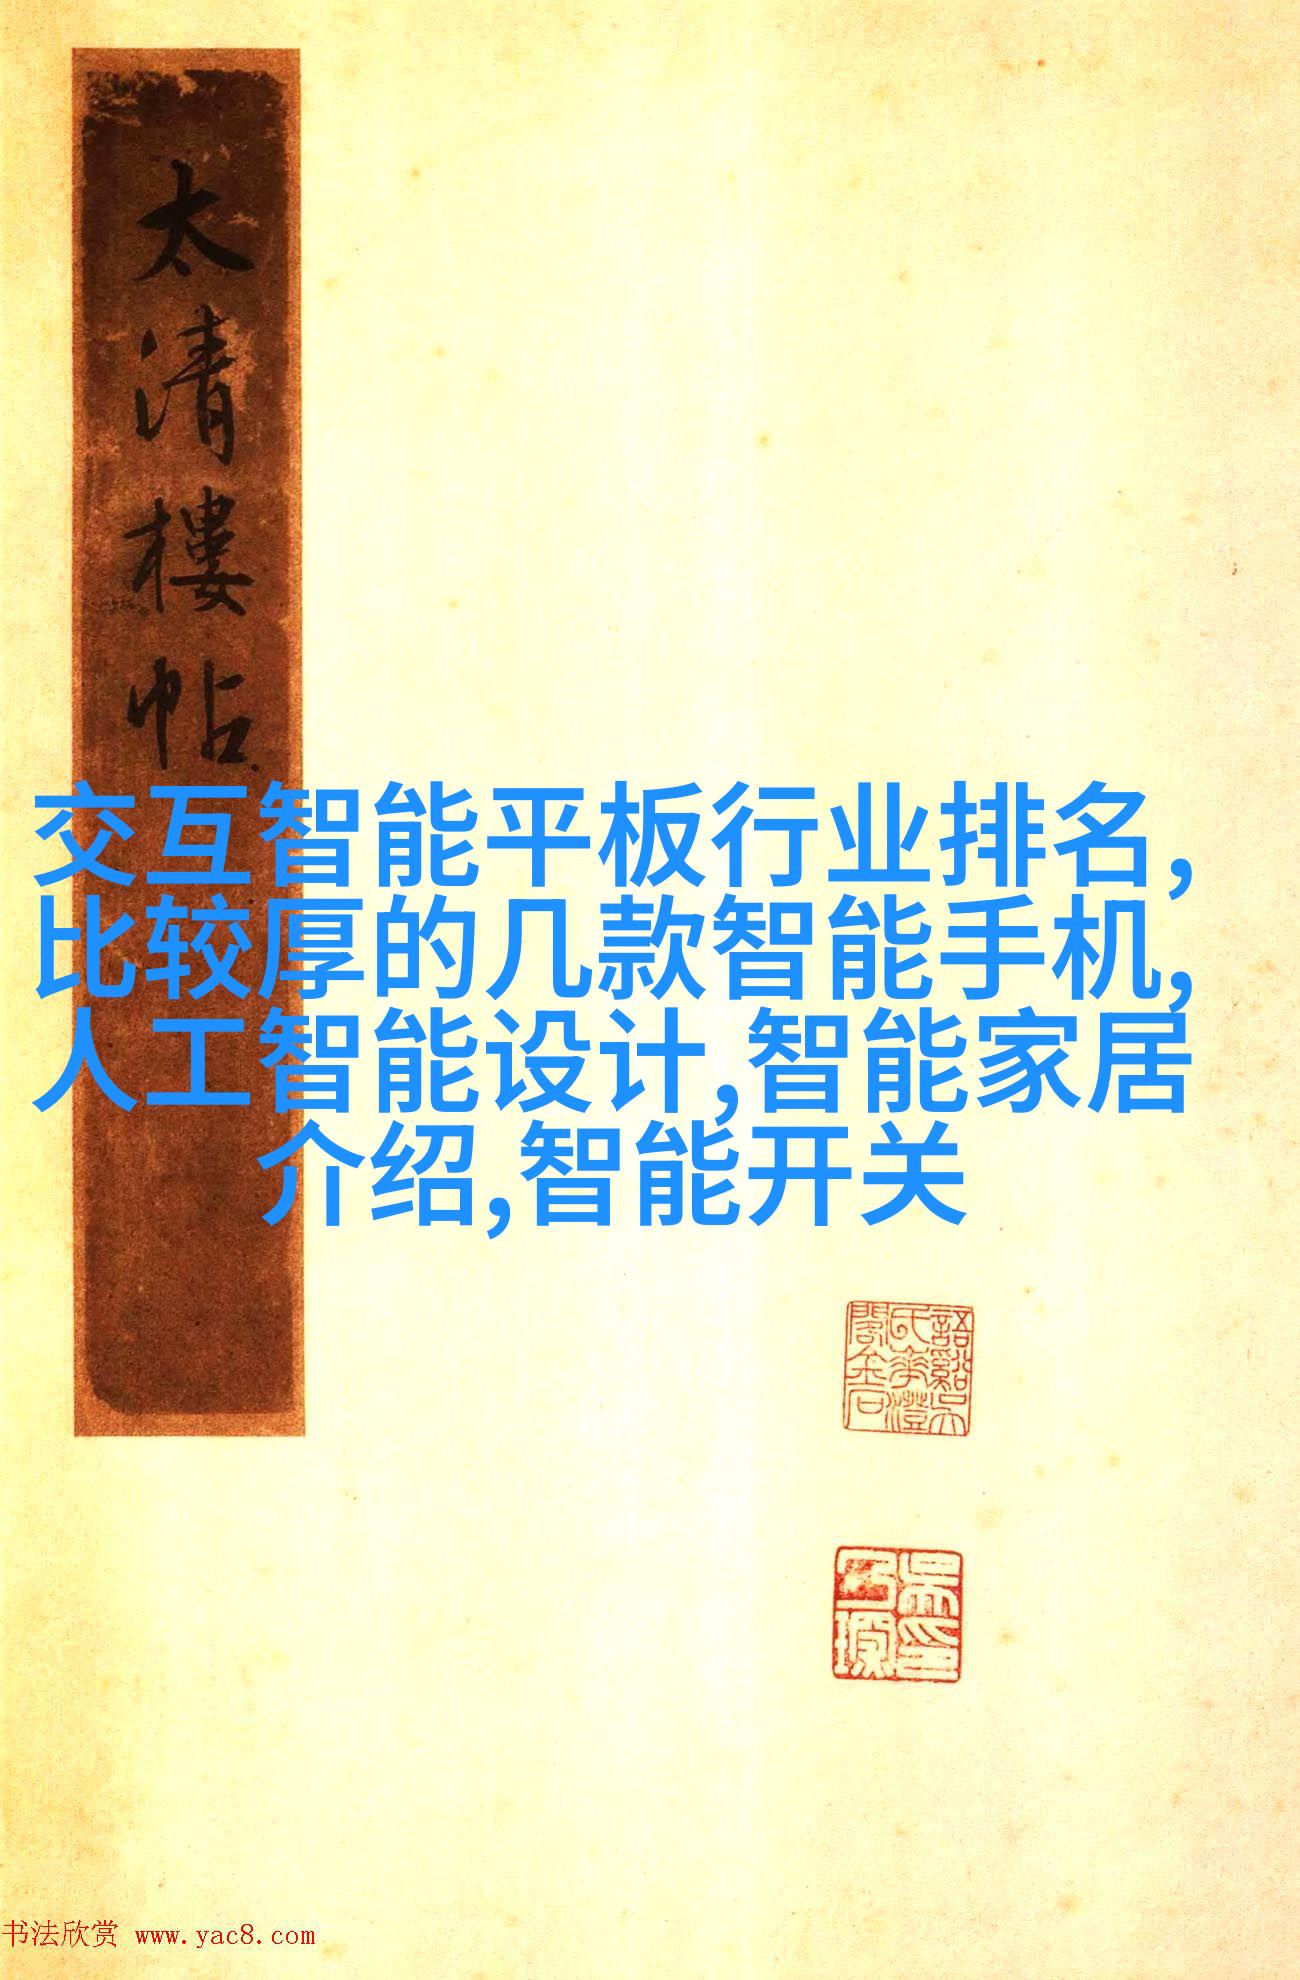 太清樓帖
交互智能平板行业排名,
比较厚的几款智能手机,
人工智能设计,智能家居
介绍,智能开关
书法欣赏 www.yac8.com